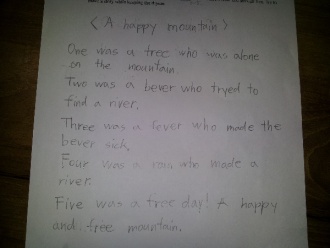 < A happy mountain >
One was a tree who was alone
on the mountain.
Two was a bever who tryed to
find a river.
Three was a fever who made the
bever sick.
Four was a rain who made a
river.
Five was a tree day! A happy
and free mountain.